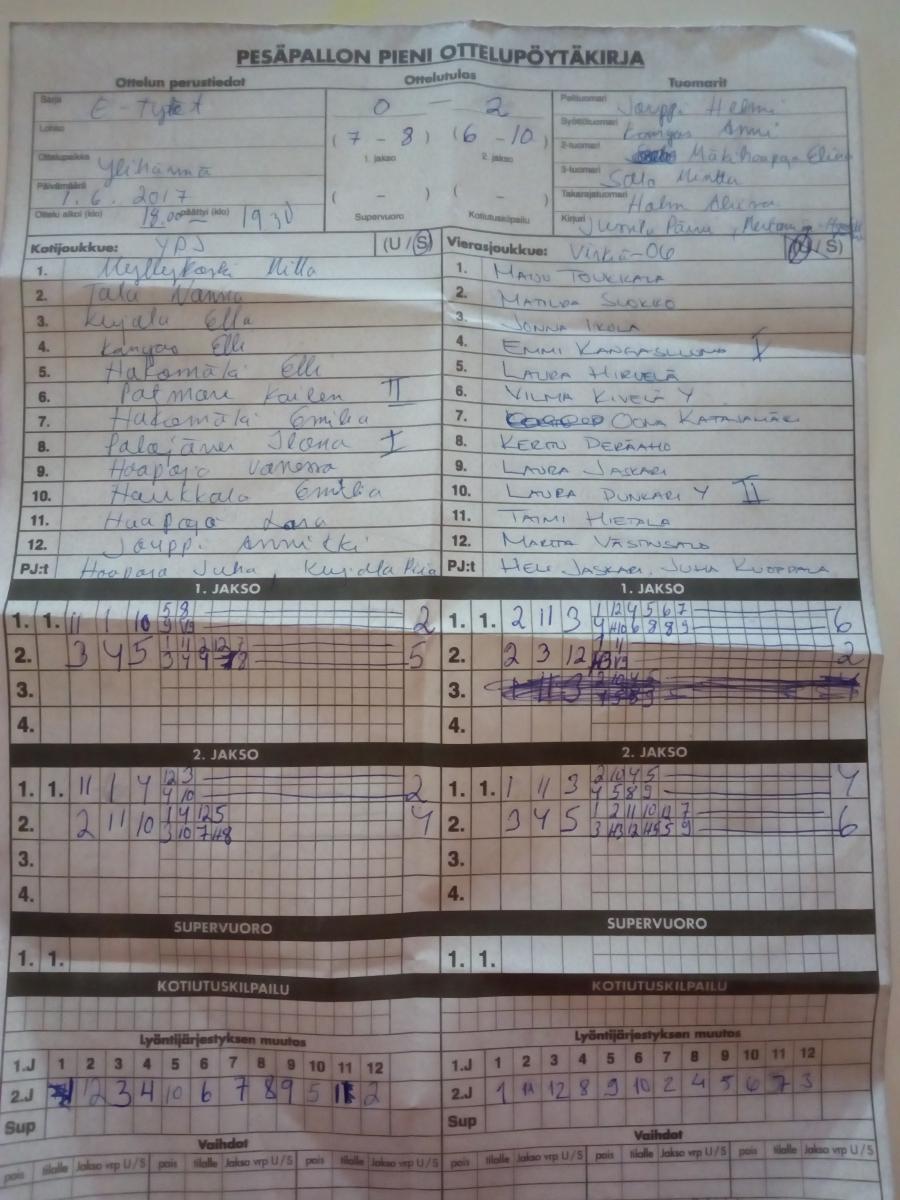 PESÄPALLON PIENI OTTELUPÖYTÄKIRJA
Ottelun perustiedot Ottelutulos Tuomarit
Sarja E-tytöt
0 — 2
Pelituomari Jouppi Helmi
Lohko
(7 - 8) (6 - 10)
Syöttötuomari Kangas Anni
1. jakso 2. jakso
2-tuomari
Ottelupaikka Ylihärmä
3-tuomari Salo Minttu
Päivämäärä 1.6.2017
( - ) ( - )
Takarajatuomari
Ottelu alkoi (klo) 18.00 päättyi (klo) 19.30
Supervuoro Kotiutuskilpailu
Kirjuri
Kotijoukkue: YPJ (U / S) Vierasjoukkue: Virkiä-06 (U / S)
1. Myllykoski Milla 1. MAIJU TOUKKALA
2. Talu Nanna 2. MATILDA SLOKKO
3. Kujala Ella 3. JONNA IKOLA
4. Kangas Elli 4. EMMI KANGASLUOMA I
5. Hakomäki Elli 5. LAURA HIRVELÄ
6. II 6. VILMA KIVELÄ Y
7. Hakomäki Emilia 7. OONA KATAJAMÄKI
8. Palojärvi Ilona I 8. KERTTU PERÄAHO
9. Haapoja Vanessa 9. LAURA JASKARI
10. Haukkala Emilia 10. LAURA PUNKARI Y II
11. Haapoja Lara 11. TAIMI HIETALA
12. Jouppi Annikki 12. VÄSTINSALO
PJ:t Haapoja Juha, Kujala Piia PJ:t HELI JASKARI, JUHA KUOPPALA
1. JAKSO 1. JAKSO
1. 1. 11 1 10 5 8 2 1. 1. 2 11 3 1 12 4 5 6 7 6
9
2. 3 4 5 5 2. 2 3 12 1 11 2
3. 3.
4. 4.
2. JAKSO 2. JAKSO
1. 1. 11 1 4 12 3 2 1. 1. 1 11 3 2 10 4 5 4
4 10 4 5 8 9
2. 2 11 10 1 4 12 5 4 2. 3 4 5 1 2 11 10 12 7 6
3 10 7
3. 3.
4. 4.
SUPERVUORO SUPERVUORO
1. 1. 1. 1.
KOTIUTUSKILPAILU KOTIUTUSKILPAILU
Lyöntijärjestyksen muutos Lyöntijärjestyksen muutos
1.J 1 2 3 4 5 6 7 8 9 10 11 12 1.J 1 2 3 4 5 6 7 8 9 10 11 12
2.J 1 12 3 4 10 6 7 8 9 5 11 2 2.J 1 11 12 8 9 10 2 4 5 6 7 3
Sup Sup
Vaihdot Vaihdot
pois tilalle Jakso vrp U / S pois tilalle Jakso vrp U / S pois tilalle Jakso vrp U / S pois tilalle Jakso vrp U / S pois tilalle Jakso vrp U / S pois tilalle Jakso vrp U / S